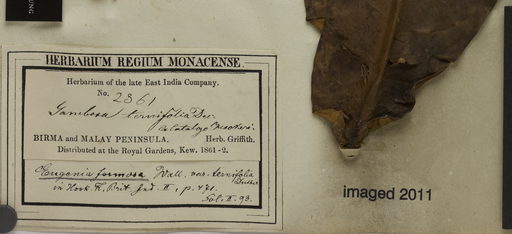 UNG
HERBARIUM REGIUM MONACENSE.
Herbarium of the late East India Company.
No. 2361
Jambosa ternifolia Dec.
BIRMA and MALAY PENINSULA. Herb. Griffith.
Distributed at the Royal Gardens, Kew. 1861-2.
Eugenia formosa Wall. var. ternifolia
in Hook. Fl. Brit. Ind. II, p. 471.
Sol. II. 93.
imaged 2011